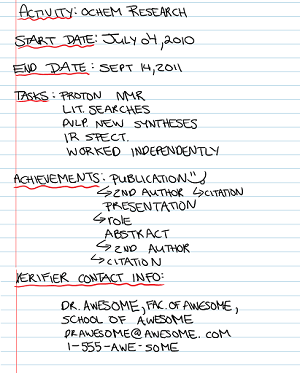 ACTIVITY: OCHEM RESEARCH
START DATE: JULY 04, 2010
END DATE: SEPT 14, 2011
TASKS: PROTON NMR
LIT. SEARCHES
DVLP. NEW SYNTHESES
IR SPECT.
WORKED INDEPENDENTLY
ACHIEVEMENTS: PUBLICATION
↳ 2ND AUTHOR ↳ CITATION
PRESENTATION
↳ ROLE
ABSTRACT
↳ 2ND AUTHOR
↳ CITATION
VERIFIER CONTACT INFO:
DR. AWESOME, FAC. OF AWESOME,
SCHOOL OF AWESOME
DRAWESOME@AWESOME.COM
1-555-AWE-SOME